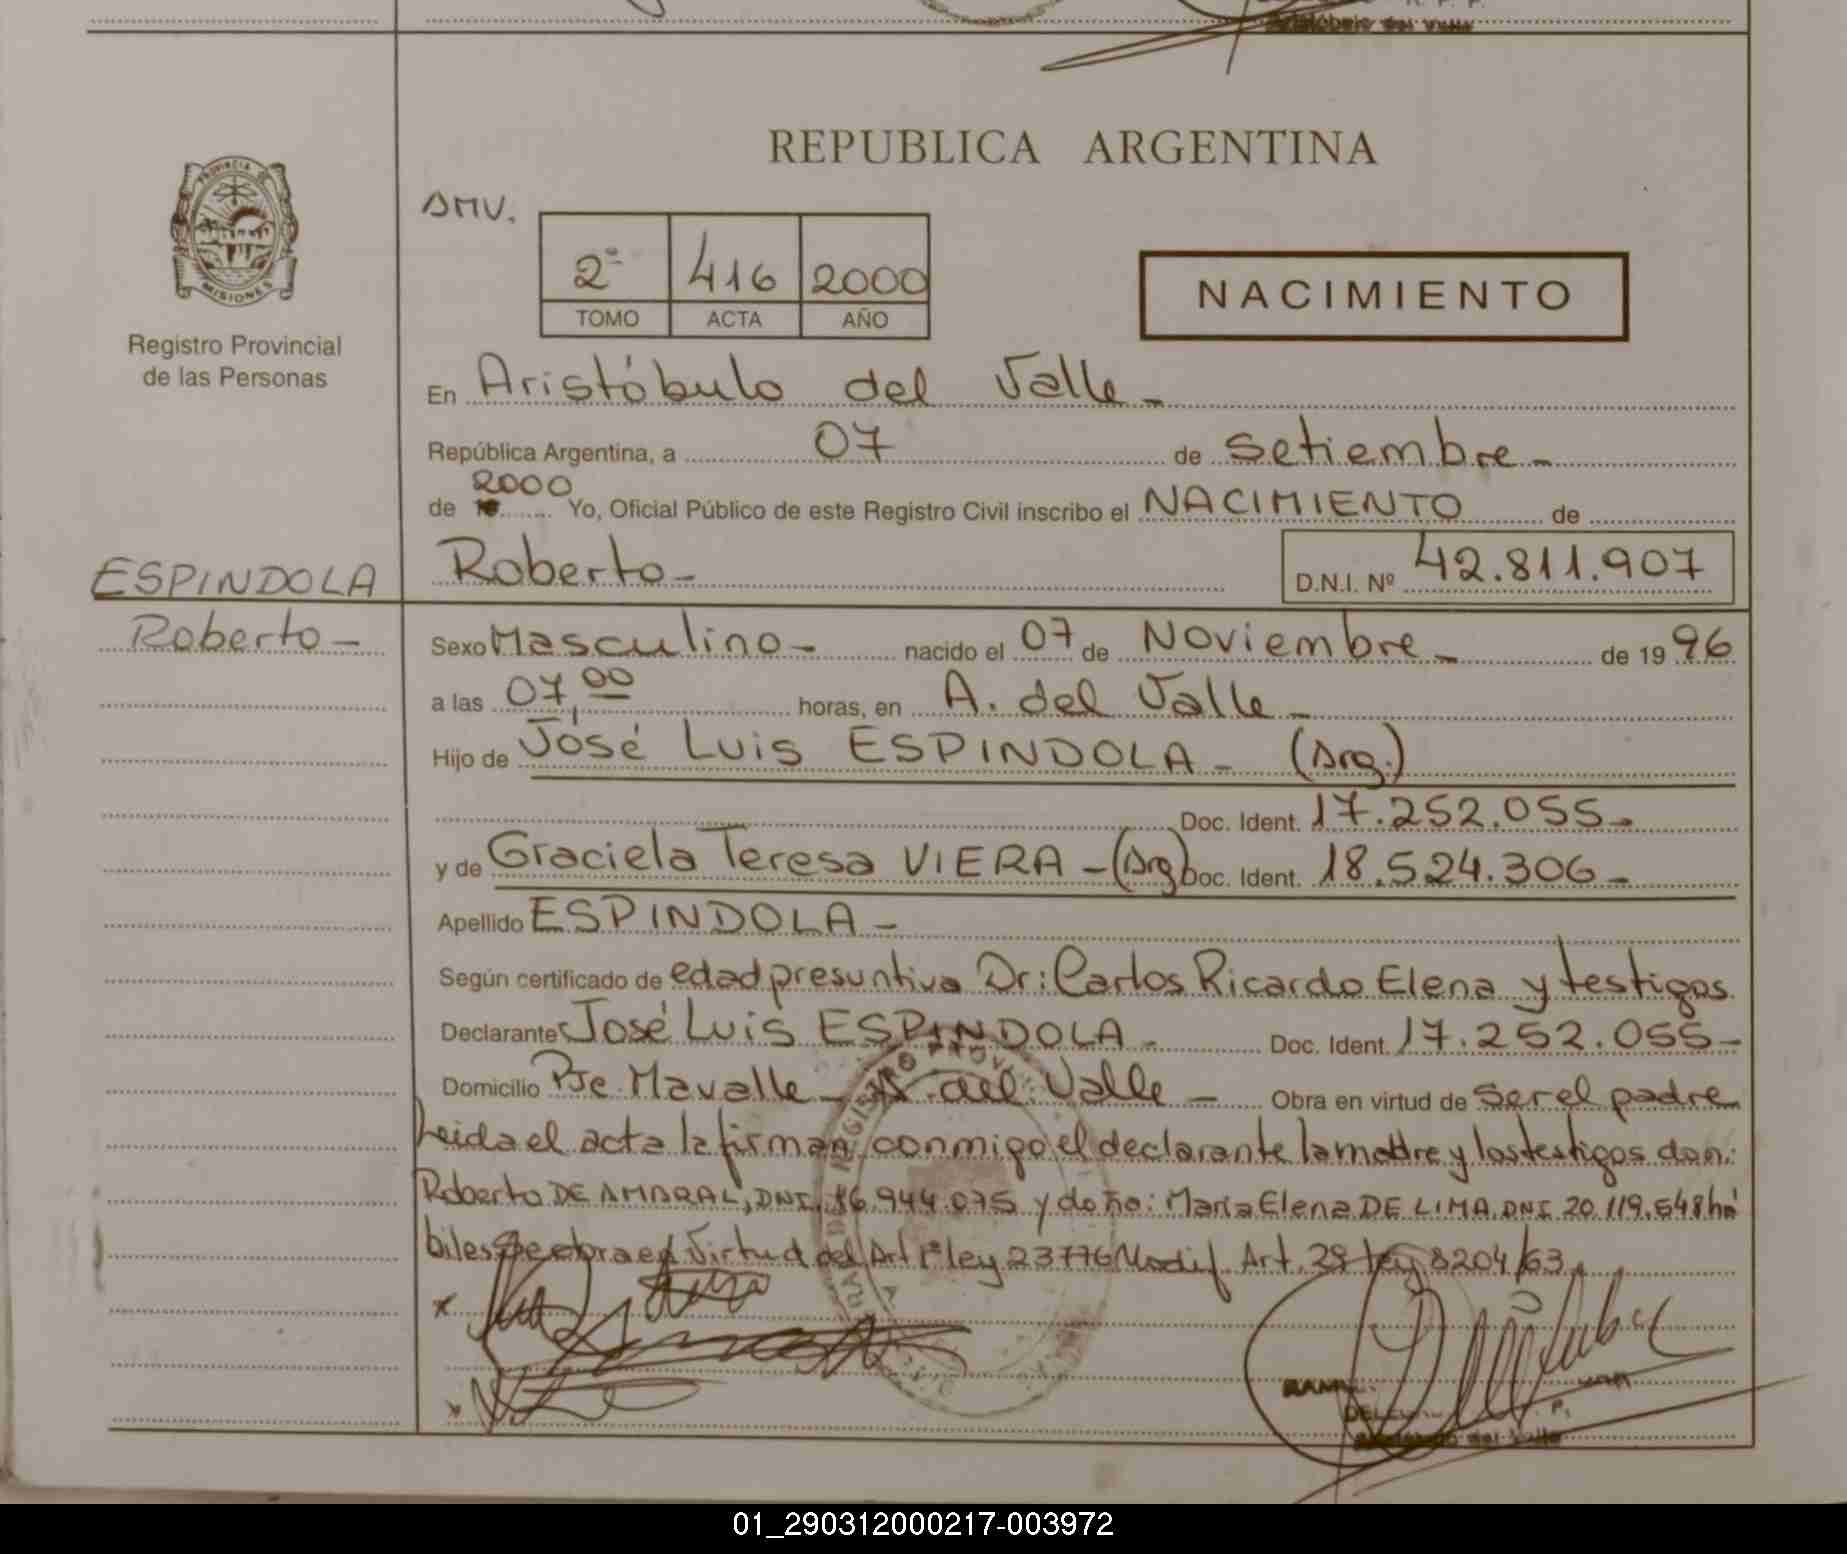 Aristóbulo del Valle
REPUBLICA ARGENTINA
PROVINCIA DE
MISIONES
Registro Provincial
de las Personas
AMV.
2º 416 2000
TOMO ACTA AÑO
NACIMIENTO
En Aristóbulo del Valle -
República Argentina, a 07 de Setiembre -
de 2000 Yo, Oficial Público de este Registro Civil inscribo el NACIMIENTO de
Roberto - D.N.I. Nº 42.811.907
ESPINDOLA
Roberto -
Sexo Masculino - nacido el 07 de Noviembre - de 19 96
a las 07,00 horas, en A. del Valle -
Hijo de José Luis ESPINDOLA - (Arg.)
Doc. Ident. 17.252.055 -
y de Graciela Teresa VIERA - (Arg) Doc. Ident. 18.524.306 -
Apellido ESPINDOLA -
Según certificado de edad presuntiva Dr: Carlos Ricardo Elena y testigos
Declarante José Luis ESPINDOLA - Doc. Ident. 17.252.055 -
Domicilio Pje. Mavalle - A. del Valle - Obra en virtud de ser el padre
Leida el acta la firman conmigo el declarante la madre y los testigos don:
Roberto DE AMARAL, DNI. 16.944.075 y doña: Maria Elena DE LIMA DNI 20.119.548 há
biles Se obra en Virtud del Art 1º ley 23776 Modif. Art. 29 ley 8204/63
Aristóbulo del Valle
01_290312000217-003972